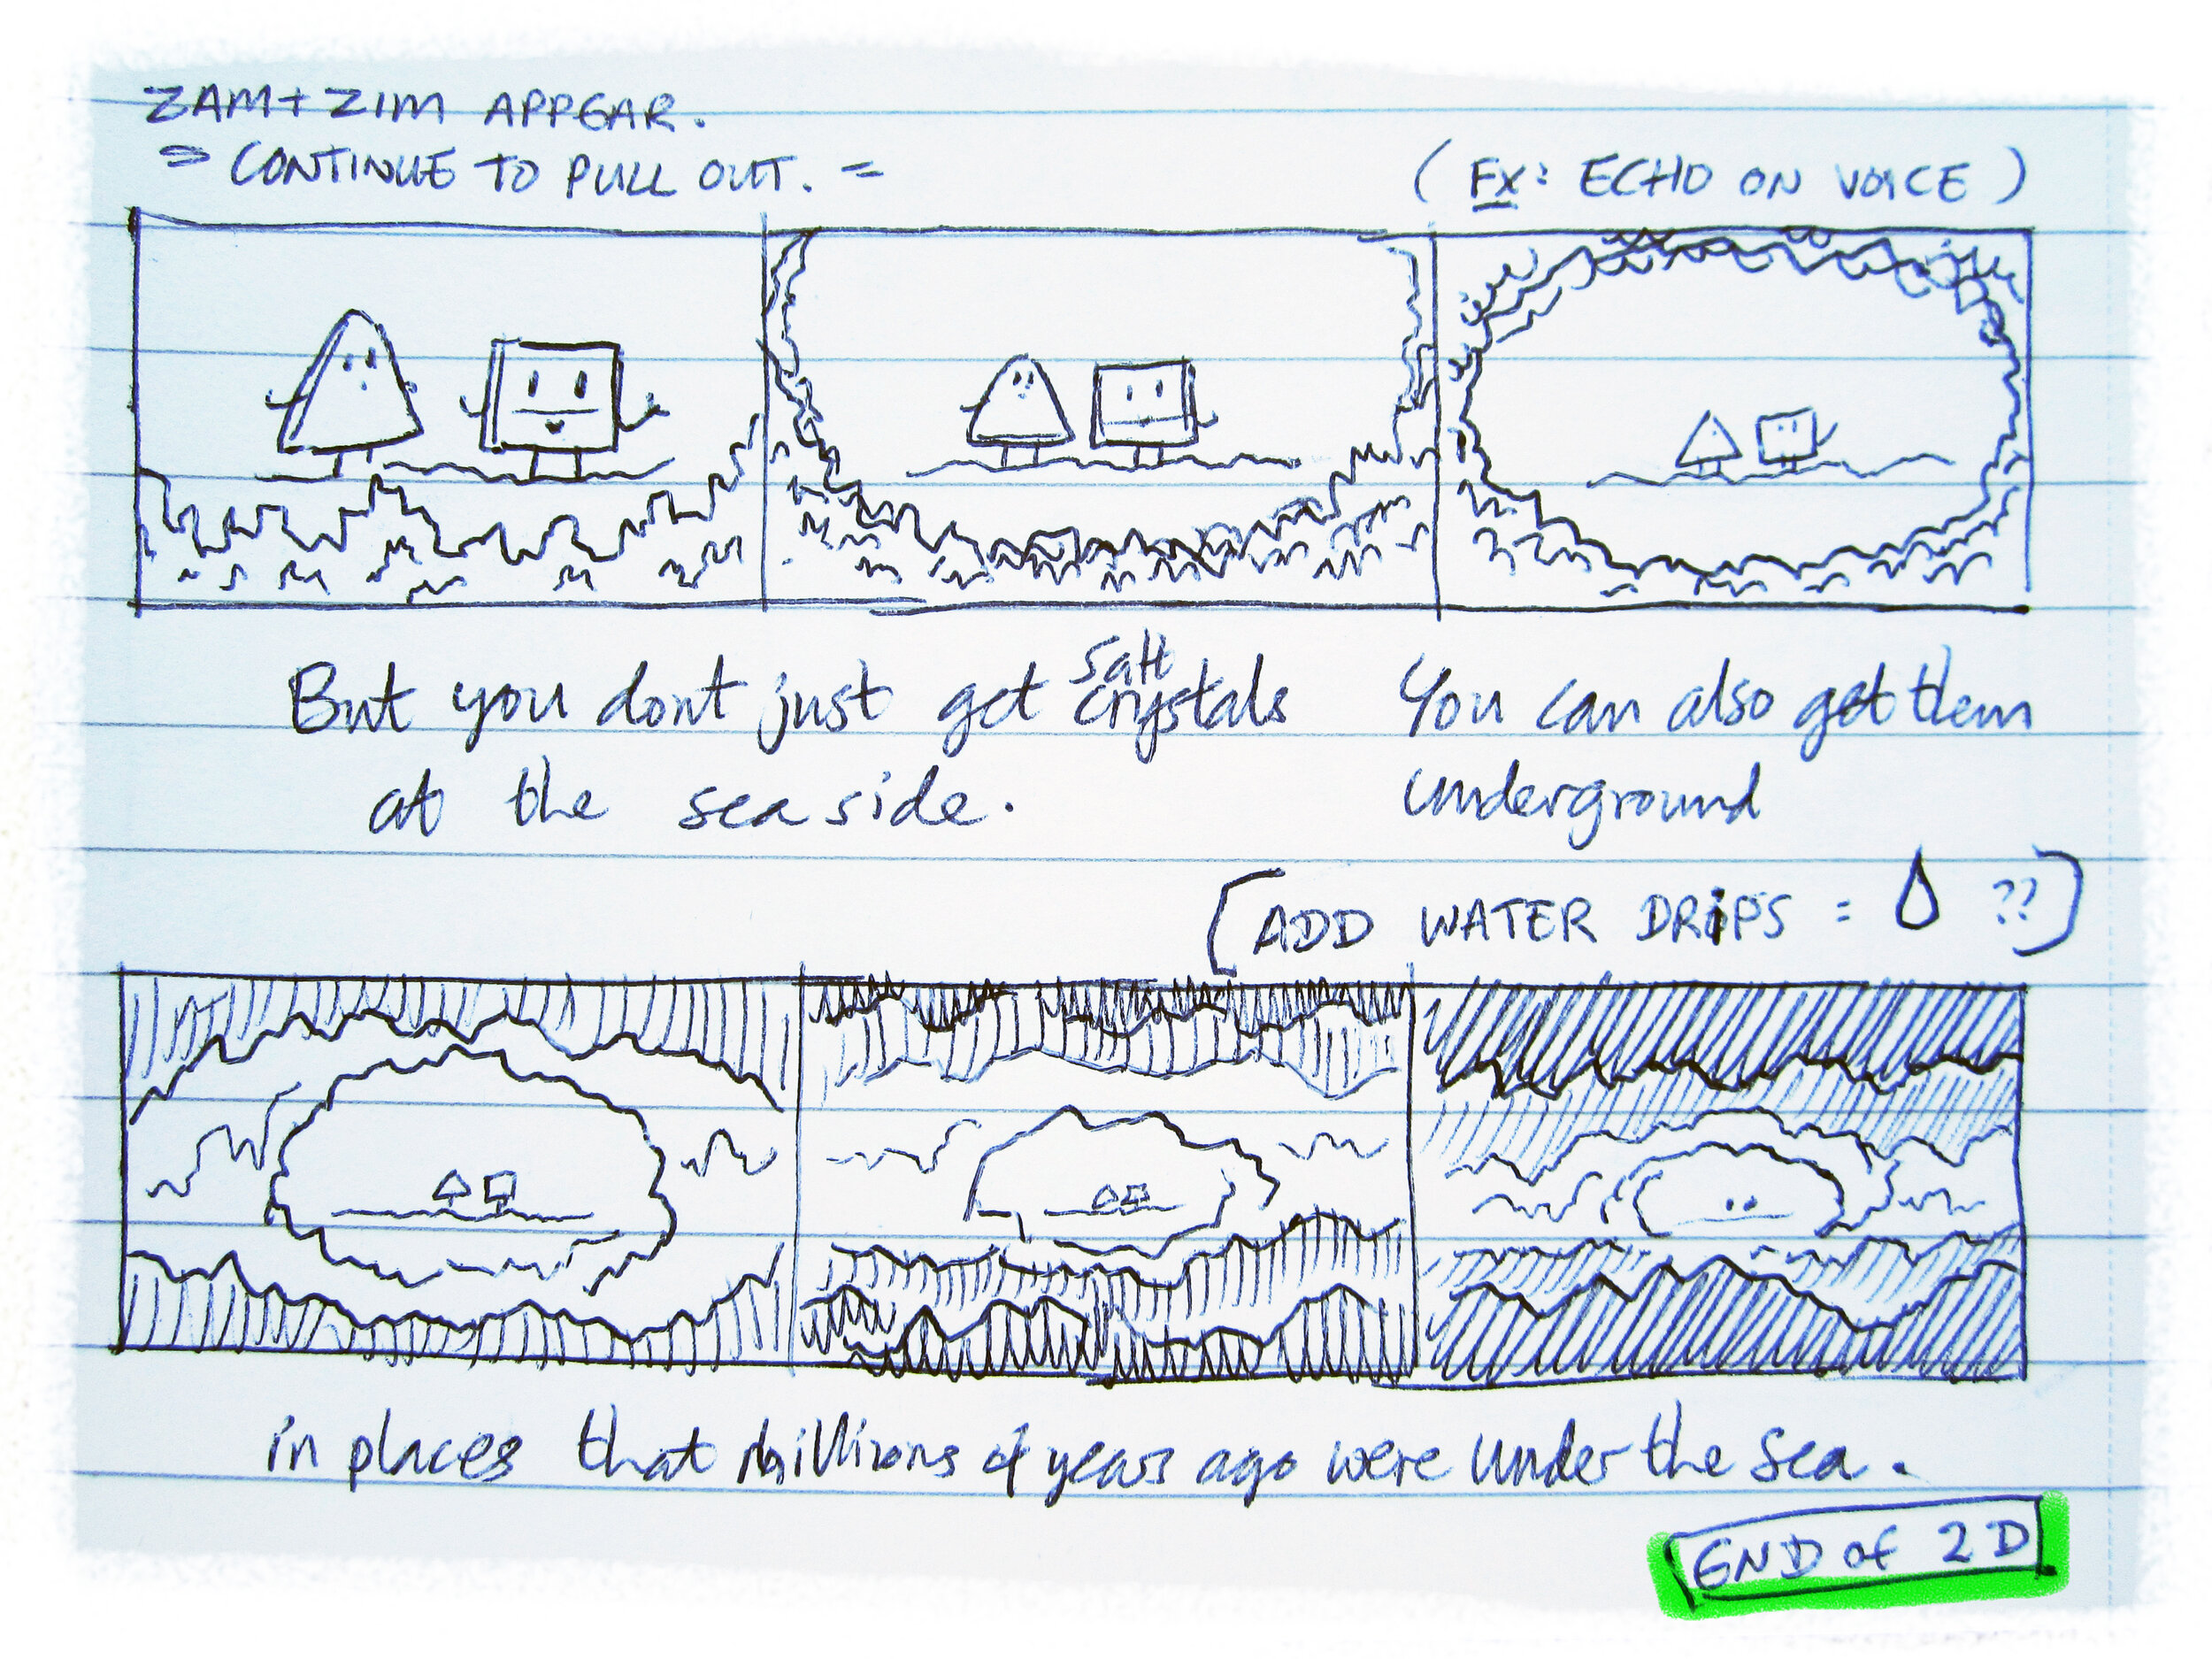 ZAM + ZIM APPEAR.
= CONTINUE TO PULL OUT. =
(FX: ECHO ON VOICE)
But you dont just get salt crystals
at the seaside.
You can also get them
underground
[ADD WATER DRiPS = ??]
in places that millions of years ago were under the sea.
END of 2D